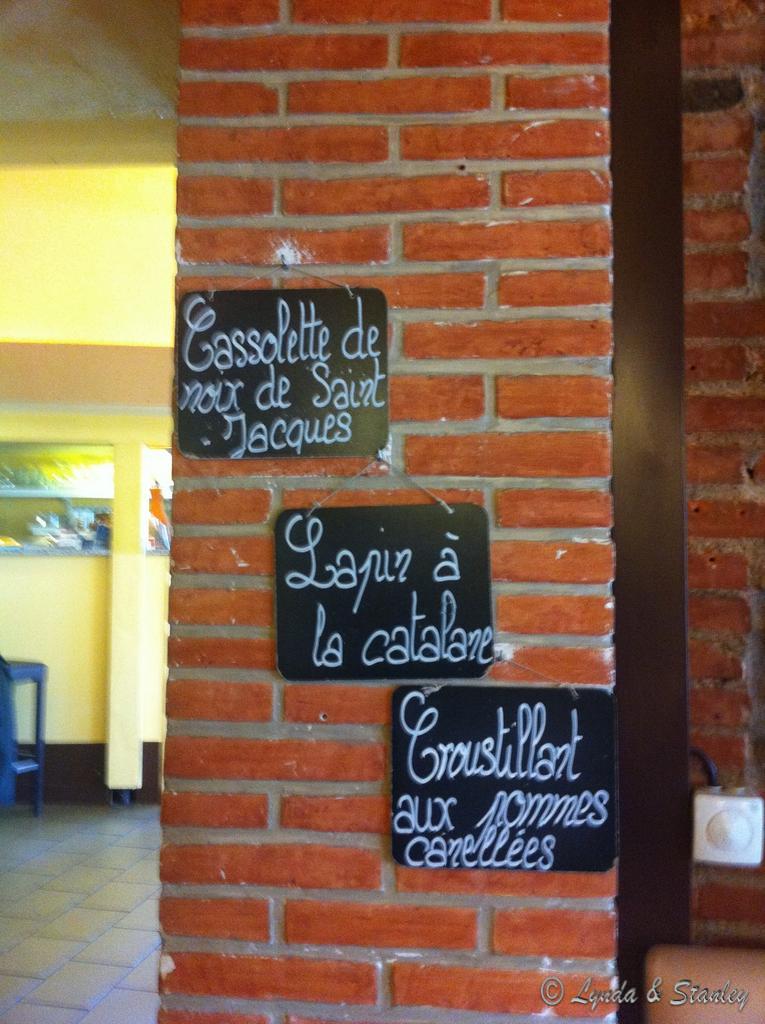 Cassolette de
noix de Saint
Jacques
Lapin à
la catalane
Croustillant
aux pommes
canellées
© Lynda & Stanley